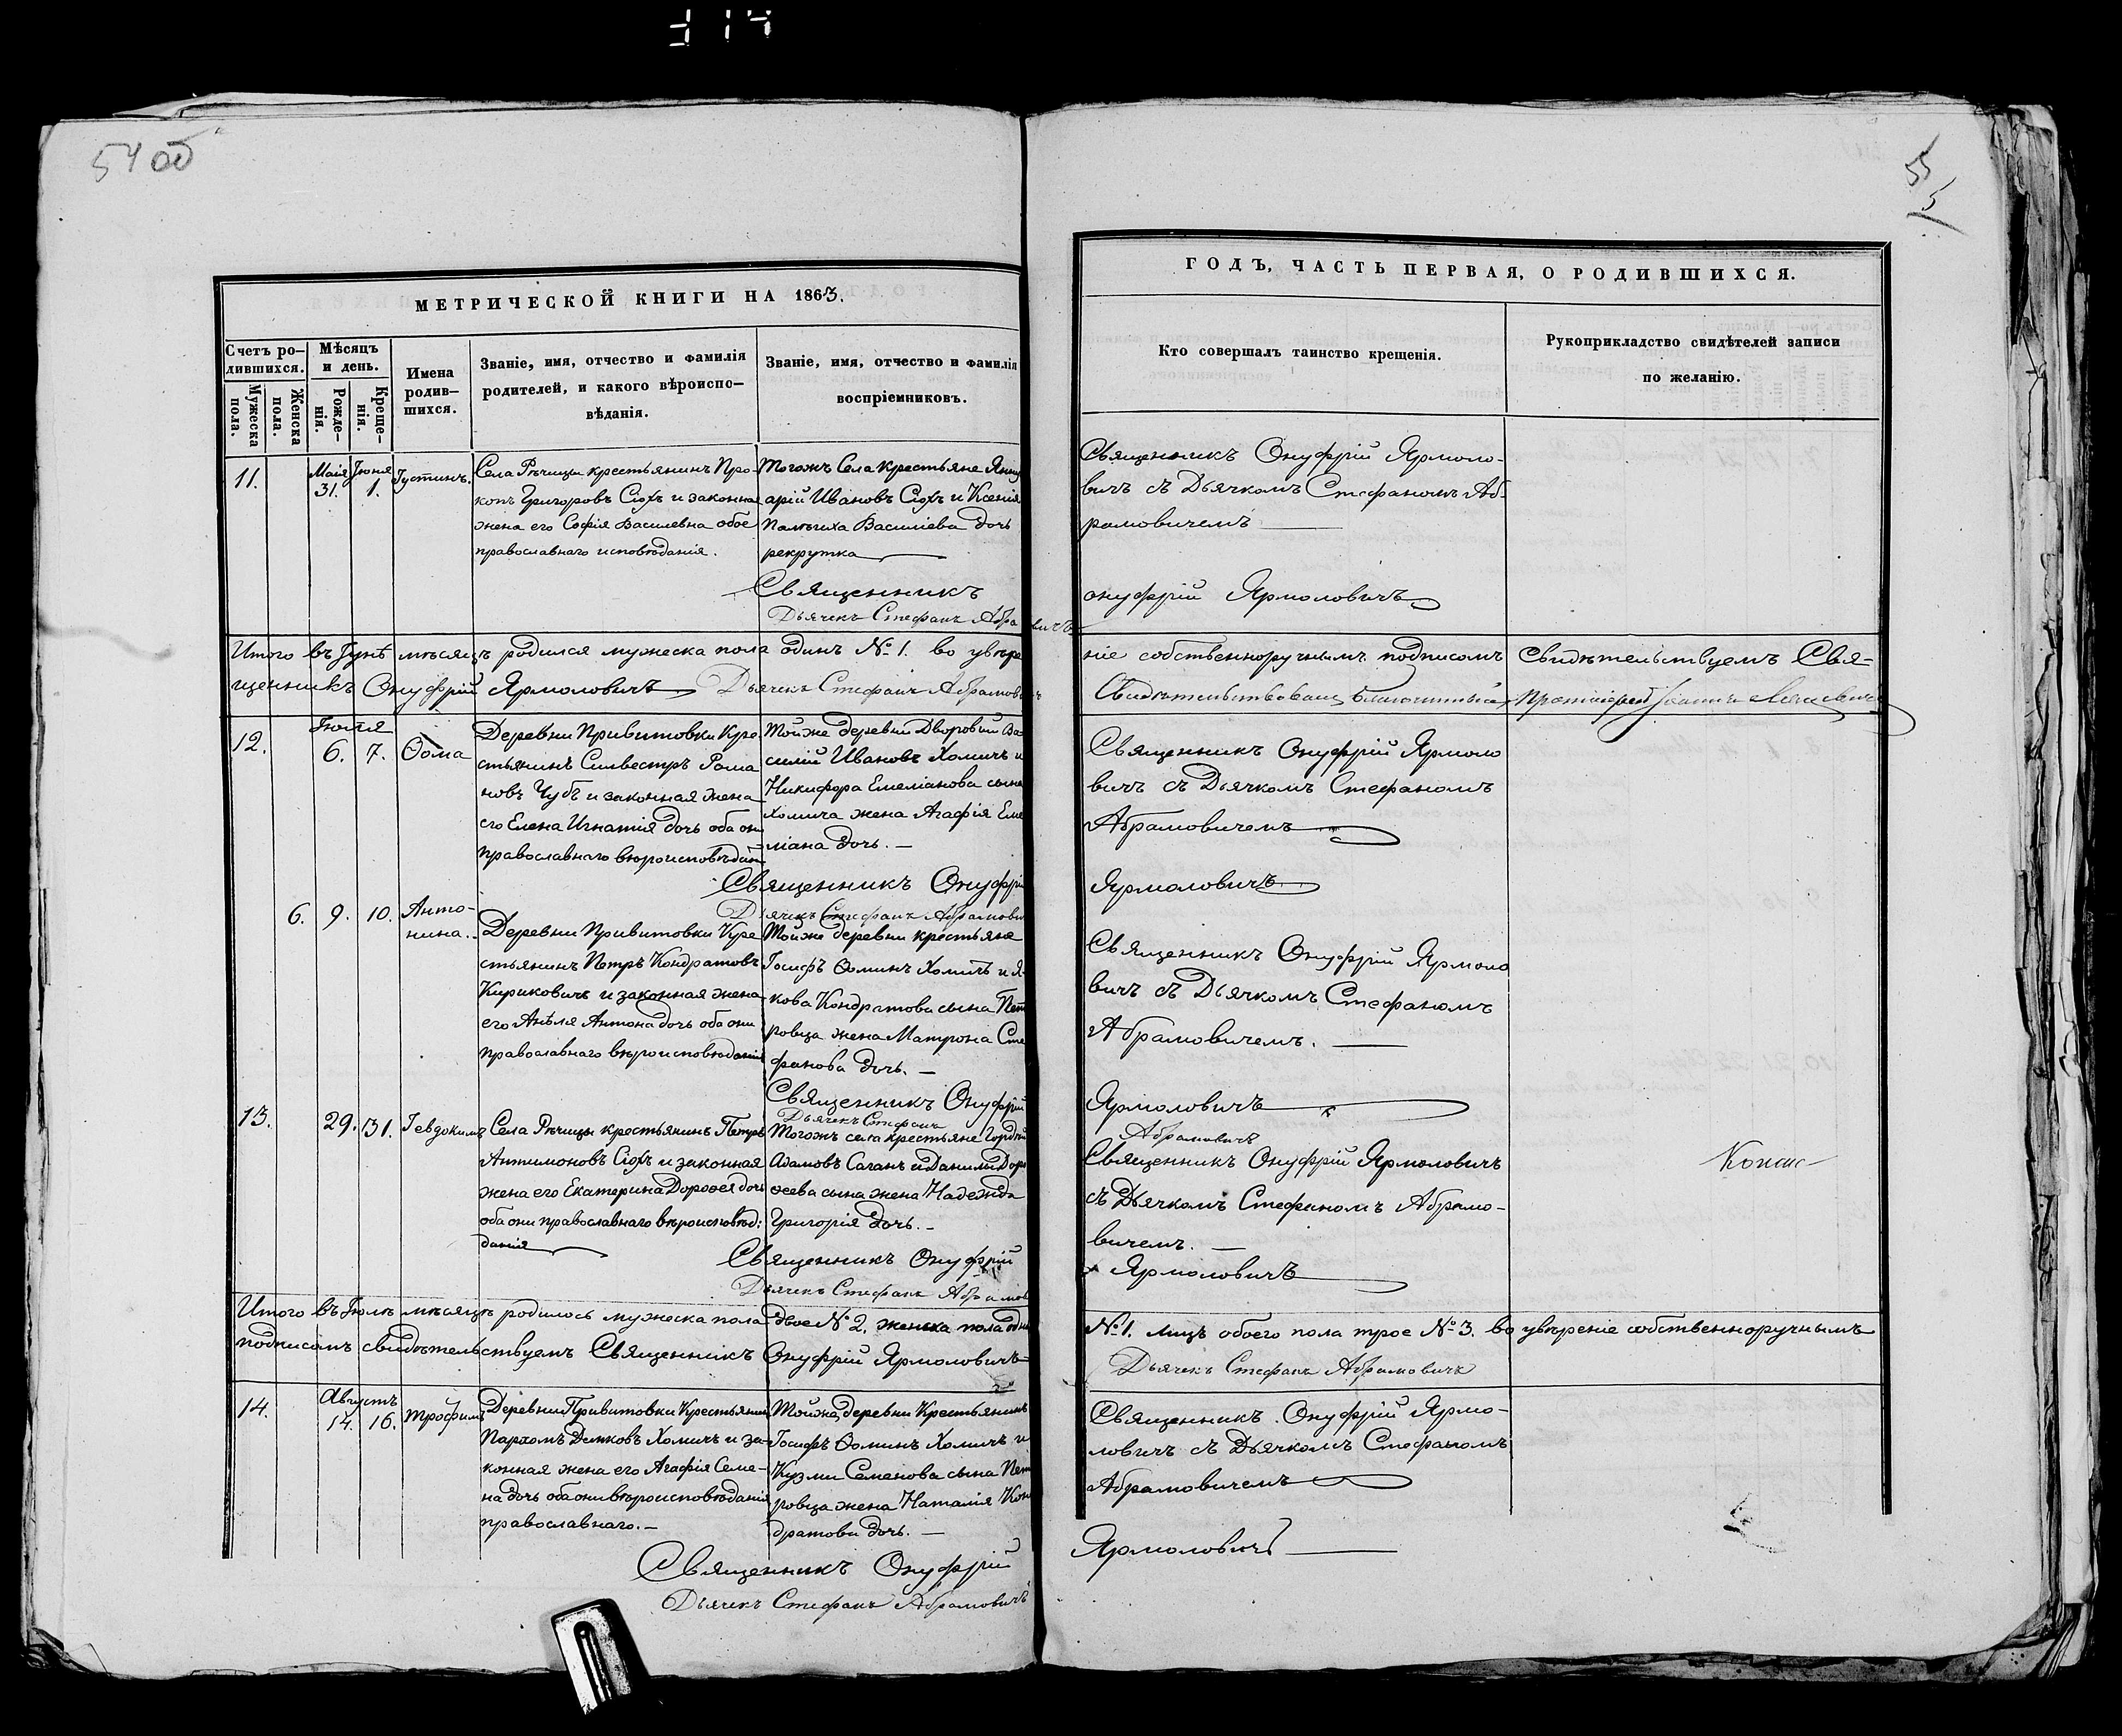 54 об
55
5
МЕТРИЧЕСКОЙ КНИГИ НА 1863.
ГОДЪ, ЧАСТЬ ПЕРВАЯ, О РОДИВШИХСЯ.
Счетъ ро–
дившихся.
Мужеска
пола.
Женска
пола.
Мѣсяцъ
и день.
Рожде–
нія.
Креще–
нія.
Имена
родив–
шихся.
Званіе, имя, отчество и фамилія
родителей, и какого вѣроиспо–
вѣданія.
Званіе, имя, отчество и фамилія
воспріемниковъ.
Кто совершалъ таинство крещенія.
Рукоприкладство свидѣтелей записи
по желанію.
11.
Маія
31.
Іюня
1.
Іустинъ.
Села Рѣчицы крестьянинъ Про-
копъ Григоровъ Сюхъ и законная
жена его Софія Василевна обое
православнаго исповѣданія.
Тогожъ Села крестьяне Янку
арій Ивановъ Сюхъ и Ксенія
Василіева дочь
рекрутка
Священникъ Онуфрій Ярмоло-
вичъ съ Дьячкомъ Стефаномъ Аб-
рамовичемъ
Священникъ онуфрій Ярмоловичъ
Дьячекъ Стефанъ Абрамовичъ
Итого въ Іунѣ мѣсяцѣ родился мужеска пола одинъ № 1. во увѣреніе собственноручнымъ подписомъ Свидѣтельствуемъ Свя-
щенникъ Онуфрій Ярмоловичъ Дьячекъ Стефанъ Абрамовичъ
12.
Іюля
6.
7.
Ѳома
Деревни Привитовки Кре-
стьянинъ Силвестръ Рома
новъ Чубъ и законная жена
его Елена Игнатія дочь оба они
православнаго вѣроисповѣдан
Тойже деревни Дворовый Ва
силій Ивановъ Хомичъ и
Никифора Емеліанова сына
Хомича жена Агафія Еме
ліана дочь.
Священникъ Онуфрій Ярмоло
вичъ съ Дьячкомъ Стефаномъ
Абрамовичемъ
Священникъ Онуфрій Ярмоловичъ
Дьячекъ Стефанъ Абрамови
6.
9.
10.
Анто-
нина.
Деревни Привитовки Кре
стьянинъ Петръ Кондратовъ
Кириковичъ и законная жена
его Анѣля Антона дочь оба они
православнаго вѣроисповѣданія
Тойже деревни крестьяне
Іосифъ Ѳоминъ Хомичъ и Я-
кова Кондратова сына Пет
ровца жена Матрона Сте
фанова дочь.
Священникъ Онуфрій Ярмоло
вичъ съ Дьячкомъ Стефаномъ
Абрамовичемъ.
Священникъ Онуфрій Ярмоловичъ
Дьячекъ Стефанъ Абрамовичъ
13.
29.
31.
Іевдокимъ
Села Рѣчицы крестьянинъ Петръ
Антимоновъ Сюхъ и законная
жена его Екатерина Дороѳея дочь
оба они православнаго вѣроисповѣд:
данія
Тогожъ села крестьяне Гордей
Адамовъ Саганъ и Данила Доро
ѳеева сына жена Надежда
Григорія дочь.
Священникъ Онуфрій Ярмоловичъ
съ Дьячкомъ Стефаномъ Абрамо-
вичемъ.
Священникъ Онуфрій Ярмоловичъ
Дьячекъ Стефанъ Абрамов
Итого въ Іюлѣ мѣсяцѣ родилось мужеска пола двое № 2. женска пола одна № 1. лицъ обоего пола трое № 3. во увѣреніе собственноручнымъ
подписомъ свидѣтельствуемъ Священникъ Онуфрій Ярмоловичъ Дьячекъ Стефанъ Абрамовичъ
14.
Августъ
14.
16.
Трофимъ
Деревни Привитовки Крестьянинъ
Пархомъ Хомичъ и за-
конная жена его Агафія Семе-
на дочь оба они вѣроисповѣданія
православнаго.
Тойже деревни Крестьянинъ
Іосифъ Ѳоминъ Хомичъ и
Кузми Семенова сына Пет
ровца жена Наталія Кон
дратова дочь.
Священникъ Онуфрій Ярмо-
ловичъ съ Дьячкомъ Стефаномъ
Абрамовичемъ
Священникъ Онуфрій Ярмоловичъ
Дьячекъ Стефанъ Абрамовичъ